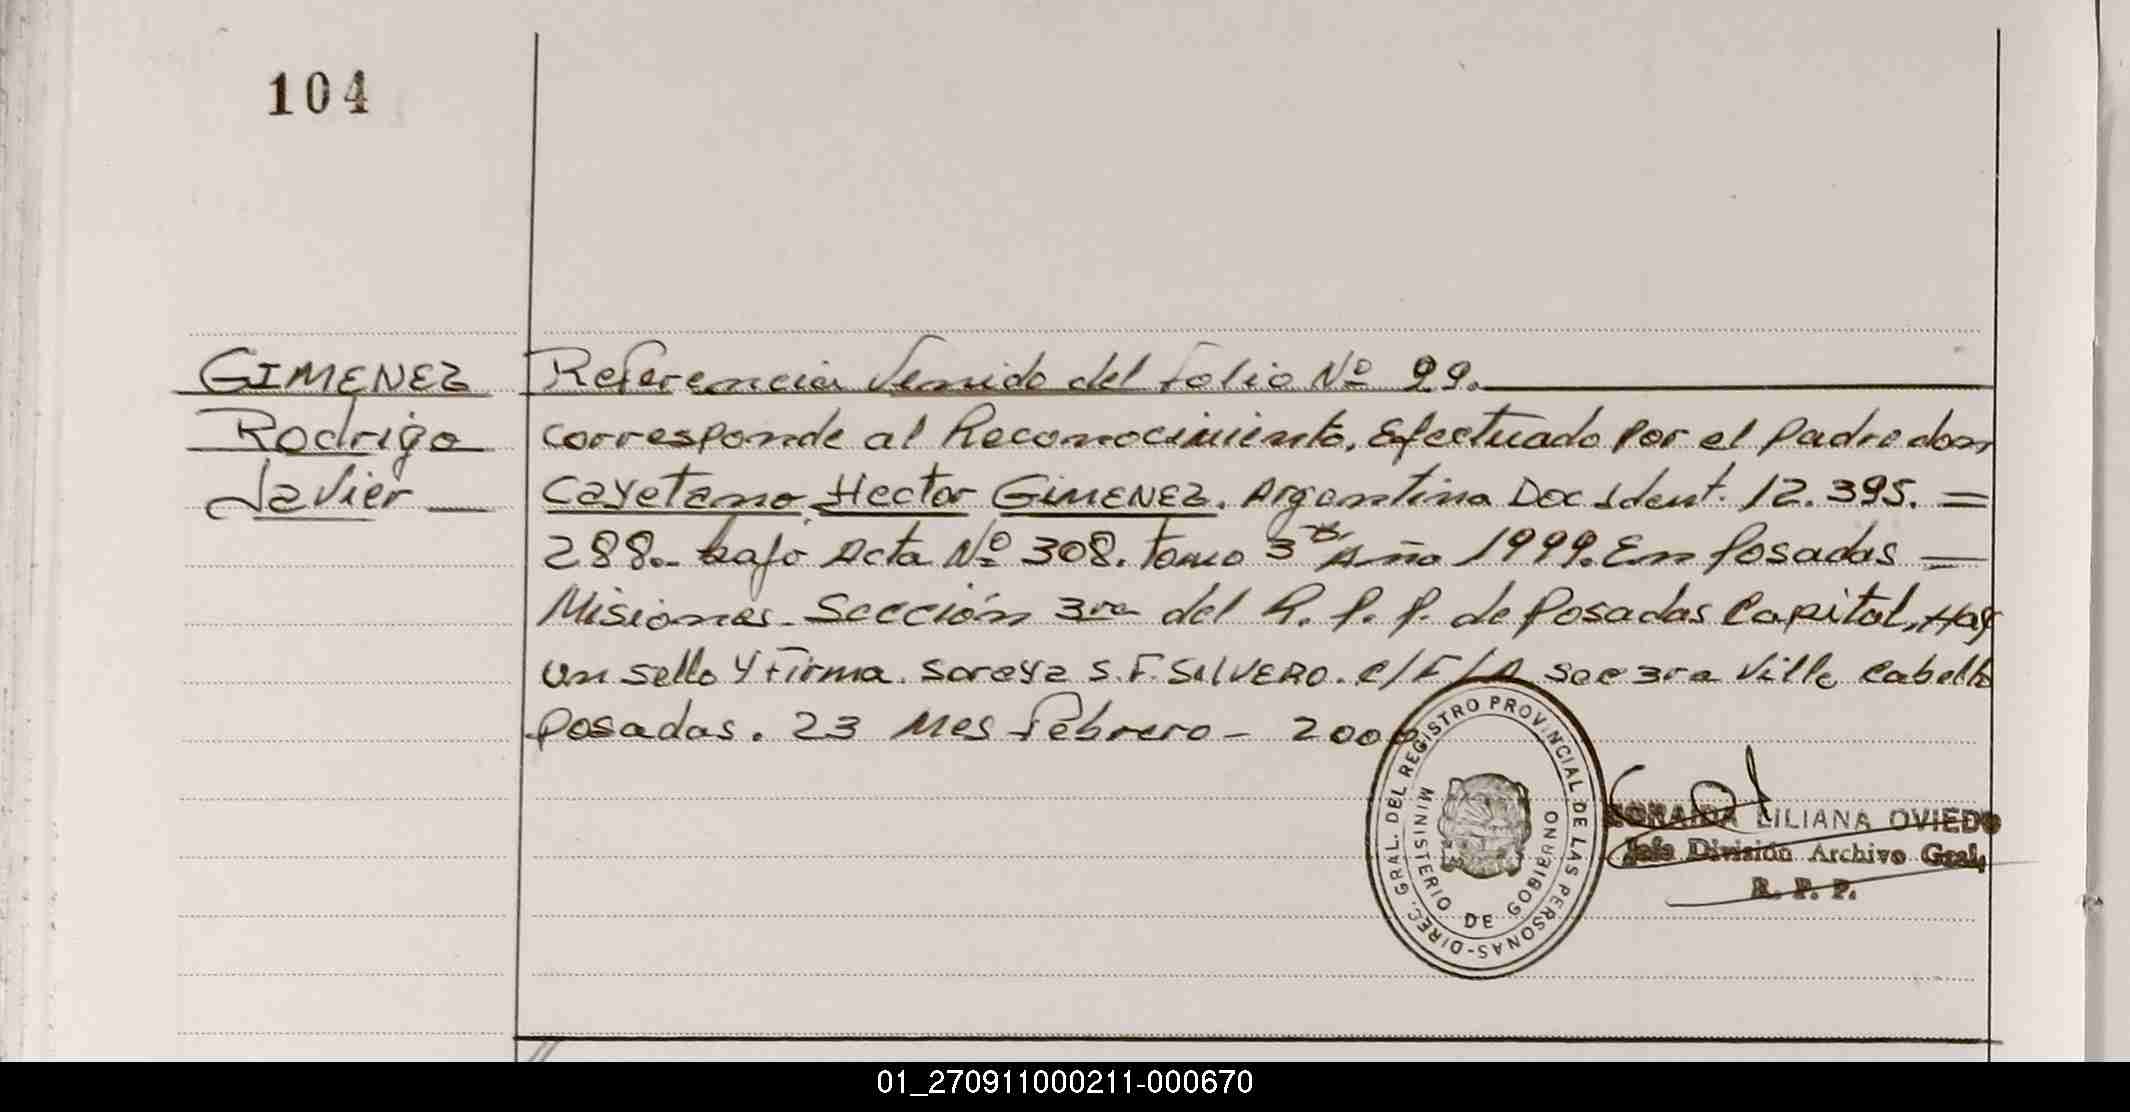 104
GIMENEZ
Rodrigo
Javier
Referencia Venida del folio Nº 99.
corresponde al Reconocimiento, Efectuado Por el padre don
Cayetano Hector GIMENEZ. Argentina Doc Ident. 12.395.=
288.- bajo Acta Nº 308. Tomo 3º Año 1999. En Posadas =
Misiones. Sección 3ra del R. P. P. de Posadas Capital, Hay
un sello y firma. Soraya S. F. SILVERO. E/F/A Sec 3ra Villa Cabello
Posadas. 23 Mes Febrero - 200
DIREC. GRAL. DEL REGISTRO PROVINCIAL DE LAS PERSONAS-
MINISTERIO DE GOBIERNO
SORAIDA LILIANA OVIEDO
Jefe División Archivo Gral,
R. P. P.
01_270911000211-000670